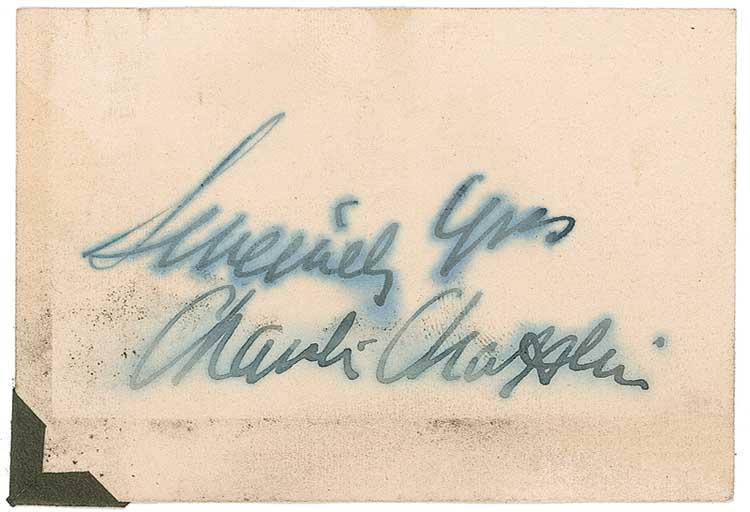 Sincerely Yours
Charlie Chaplin